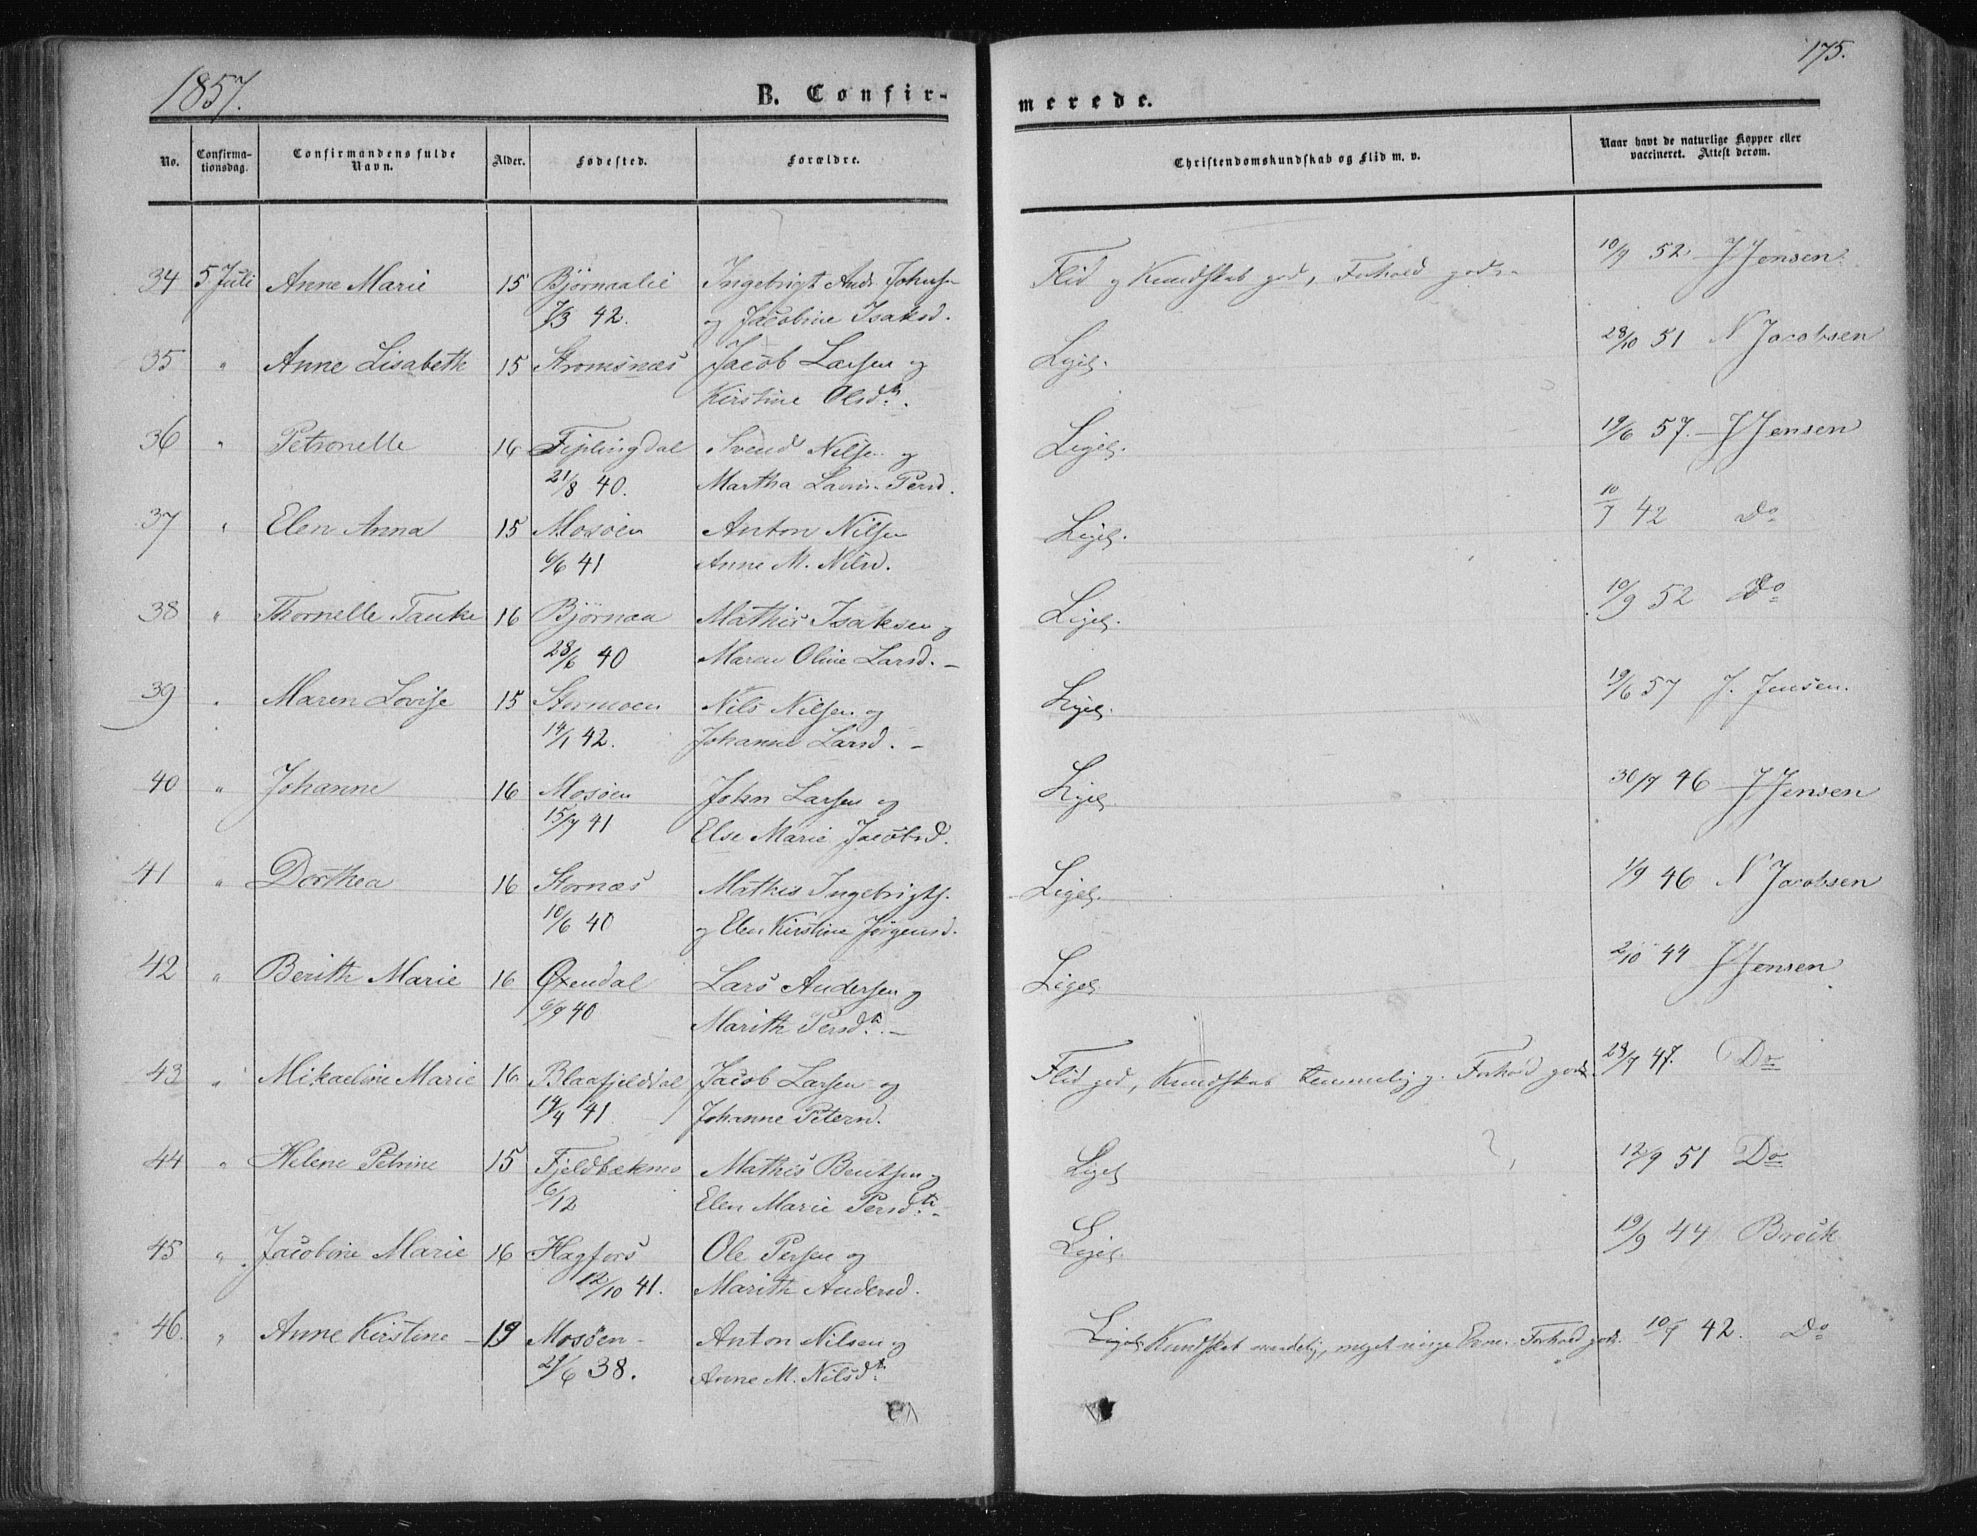 1857.
175.
B. Confir-
merede.
No.
Confirma-
tionsdag.
Confirmandens fulde
Navn.
Alder.
Fødested.
Forældre.
Christendomskundskab og Flid m. v.
Naar havt de naturlige Kopper eller
vaccineret. Attest derom.
34 5 Juli Anne Marie 15 Bjørnaalie Ingebrigt Ands Johns Flid og Kundskab god, Forhold godt 10/9 52 J Jensen
7/3 42. og Jacobine Isaksd.
35 " Anne Lisabeth 15 Stromsnæs Jacob Larsen og Ligel. 28/10 51 N Jacobsen
Kirstine Olsdtr.
36 " Petronelle 16 Fiplingdal Svend Nilsen og Ligel. 19/6 57. J Jensen
21/8 40. Martha Persd.
37 " Elen Anna 15 Mosøen Anton Nilsen Ligel. 10/7 42 Do
6/6 41 Anne M. Nilsd.
38 " Thornelle Tauke 16 Bjørnaa Mathis Isaksen og Ligel. 10/9 52 Do
28/6 40 Maren Oline Larsd. -
39 " Maren Lovise 15 Stormoen Nils Nilsen og Ligel. 19/6 57 J. Jensen.
14/1 42. Johanne Larsd. -
40 " Johanne 16 Mosøen John Larsen og Ligel. 30/7 46 J Jensen
15/7 41 Else Marie Jacobsd.
41 " Dorthea 16 Stornæs Mathis Ingebrigts. Ligel. 1/9 46 N Jacobsen
10/6 40 og Elen Kirstine Jørgensd.
42 " Berith Marie 16 Øxendal Lars Andersen og Ligel. 2/10 44 J Jensen
6/9 40 Marith Persdtr. -
43 " Mikaeline Marie 16 Blaafjelddal Jacob Larsen og Flid god, Kundskab temmelig g. Forhold godt. 28/7 47. Do
14/4 41. Johanne Petersd.
44 " Helene Petrine 15 Fjeldbækmo Mathis Bentsen og Ligel. 12/9 51 Do
6/12 Elen Marie Persdtr. -
45 " Jacobine Marie 16 Hagfors Ole Persen og Ligel. 19/9 44 Brock
12/10 41. Marith Andersd.
46. " Anne Kirstine - 19 Mosøen - Anton Nilsen og Ligel. Kundskab maadelig, meget ringe Evner. Forhold godt. 10/7 42. Do
21/6 38. Anne M. Nilsdtr.